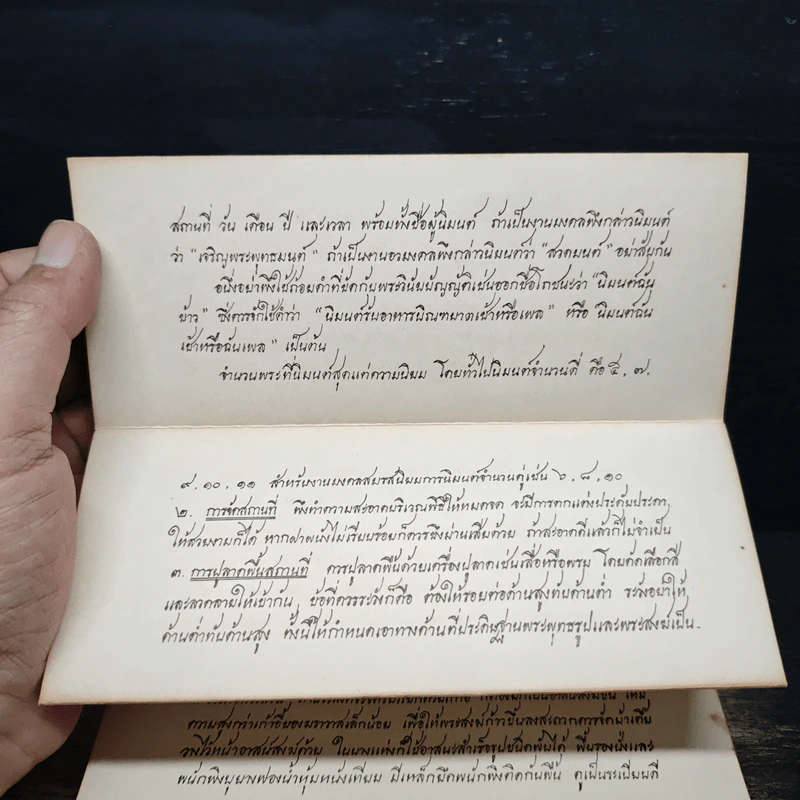 สถานที่ วัน เดือน ปี และเวลา พร้อมทั้งชื่อผู้นิมนต์ ถ้าเป็นงานมงคลพึงกล่าวนิมนต์
ว่า "เจริญพระพุทธมนต์" ถ้าเป็นงานอวมงคลพึงกล่าวนิมนต์ว่า "สวดมนต์" อย่าสับกัน
อนึ่งอย่าพึงใช้ถ้อยคำที่ขัดกับพระวินัยบัญญัติเช่นออกชื่อโภชนะว่า "นิมนต์ฉัน
ข้าว" ซึ่งควรจักใช้คำว่า "นิมนต์รับอาหารบิณฑบาตเช้าหรือเพล" หรือ "นิมนต์ฉัน
เช้าหรือฉันเพล" เป็นต้น
จำนวนพระที่นิมนต์สุดแต่ความนิยม โดยทั่วไปนิมนต์จำนวนคี่ คือ ๕, ๗,
๙, ๑๐, ๑๑ สำหรับงานมงคลสมรสนิยมการนิมนต์จำนวนคู่เช่น ๖, ๘, ๑๐
๒. การจัดสถานที่ พึงทำความสะอาดบริเวณพิธีให้หมดจด จะมีการตกแต่งประดับประดา
ให้สวยงามก็ได้ หากฝาผนังไม่เรียบร้อยก็ควรขึงม่านเสียด้วย ถ้าสะอาดดีแล้วก็ไม่จำเป็น
๓. การปูลาดพื้นสถานที่ ควรปูลาดพื้นด้วยเครื่องปูลาดเช่นเสื่อหรือพรม โดยคัดเลือกสี
และลวดลายให้เข้ากัน ข้อที่ควรระวังก็คือ ต้องให้รอยต่อด้านสูงทับด้านต่ำ ระวังอย่าให้
ด้านต่ำทับด้านสูง ทั้งนี้ให้กำหนดเอาทางด้านที่ประดิษฐานพระพุทธรูปและพระสงฆ์เป็น-
ความสูงกว่าเก้าอี้ของฆราวาสเล็กน้อย เพื่อให้พระสงฆ์ก้าวขึ้นลงสะดวกควรจัดม้าเตี้ย
วางไว้หน้าอาสน์สงฆ์ด้วย ในบางแห่งก็ใช้อาสนะสำเร็จรูปชนิดพับได้ พื้นรองนั่งและ
พนักพิงบุยางฟองน้ำหุ้มหนังเทียม มีเหล็กยึดพนักพิงติดกับพื้น ดูเป็นระเบียบดี